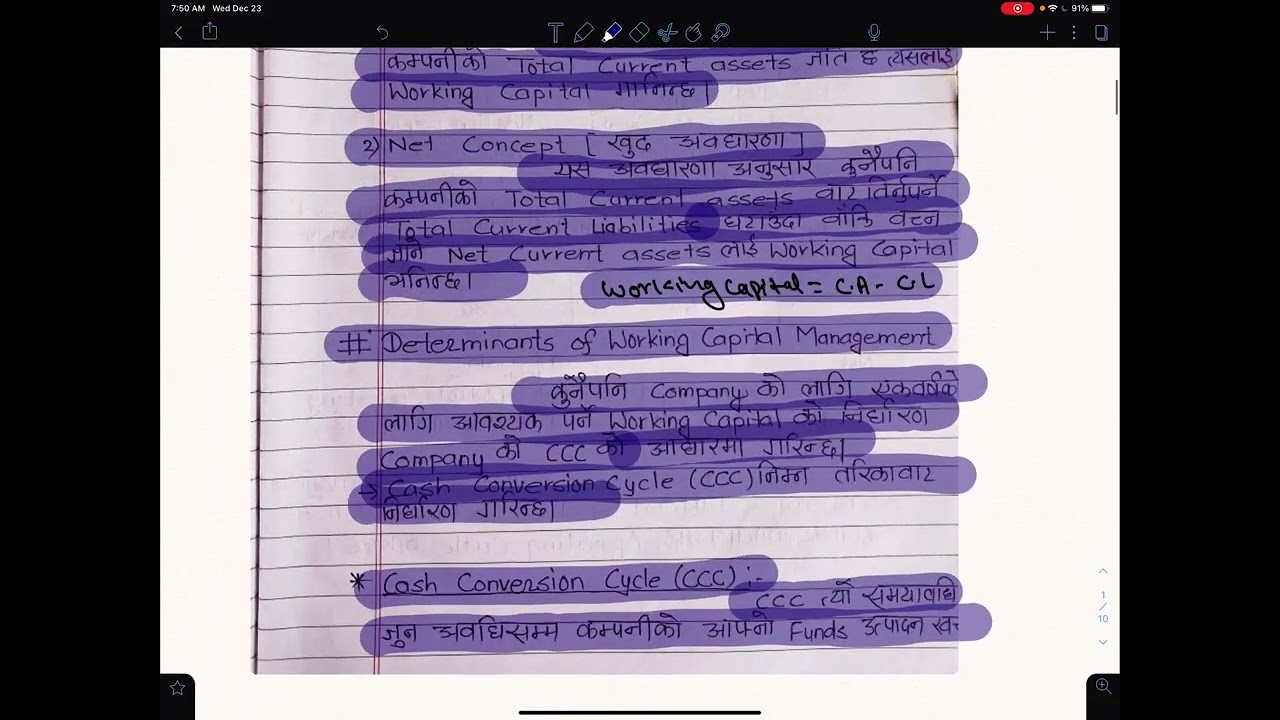 7:50 AM Wed Dec 23
91%
कम्पनीको Total Current assets जति छ त्यसलाई
Working Capital मानिन्छ।
2) Net Concept [ खुद अवधारणा ]
यस अवधारणा अनुसार कुनैपनि
कम्पनीको Total Current assets बाट तिर्नुपर्ने
Total Current Liabilities घटाउंदा बाँकि बच्न
जाने Net Current assets लाई Working Capital
भनिन्छ।
Working Capital = C.A - CL
# Determinants of Working Capital Management
कुनैपनि Company को लागि एकवर्षको
लागि आवश्यक पर्ने Working Capital को निर्धारण
Company को CCC को आधारमा गरिन्छ।
→ Cash Conversion Cycle (CCC) निम्न तरिकाबाट
निर्धारण गरिन्छ।
* Cash Conversion Cycle (CCC) :-
CCC त्यो समयावधि
जुन अवधिसम्म कम्पनीको आफ्नो Funds उत्पादन
1
/
10